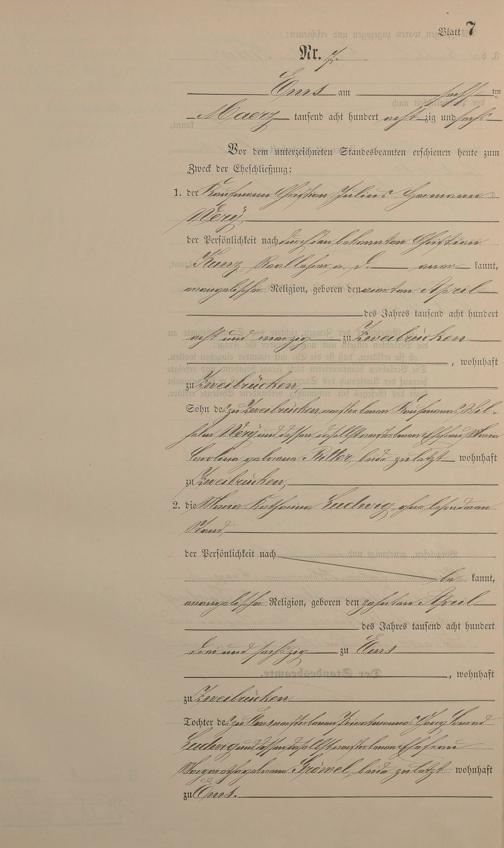 Blatt 7
Nr. 7.
Ems am ten
Maerz tausend acht hundert acht zig und sechs
Vor dem unterzeichneten Standesbeamten erschienen heute zum
Zweck der Eheschließung:
1. der Kaufmann Christian Julius Hermann
der Persönlichkeit nach durch den bekannten Christian
Kunz Reallehrer a. D. aner kannt,
evangelischer Religion, geboren den April
des Jahres tausend acht hundert
acht und vierzig zu Zweibrücken
, wohnhaft
zu Zweibrücken,
Sohn des zu Zweibrücken verstorbenen Kaufmanns Wil-
helm und dessen daselbst verstorbenen Ehefrau Maria
Carolina geborene beide zuletzt wohnhaft
zu Zweibrücken,
2. die Maria Katharina Ludwig, ohne besonderen
Stand,
der Persönlichkeit nach
be kannt,
evangelischer Religion, geboren den zehnten April
des Jahres tausend acht hundert
drei und sechszig zu Ems
, wohnhaft
zu Zweibrücken
Tochter des zu Ems verstorbenen
Ludwig und dessen daselbst verstorbenen Ehefrau
geborenen beide zuletzt wohnhaft
zu Ems.